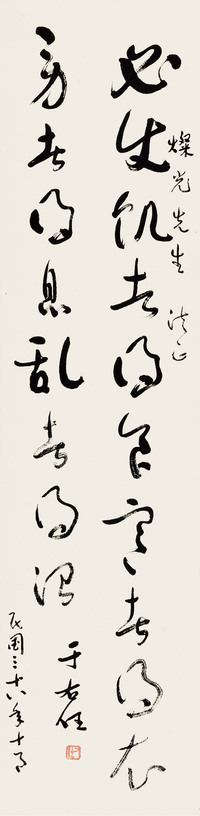 燦光先生 法正
必使飢者得食寒者得衣
勞者得息乱者得治
于右任
民國三十八年十月